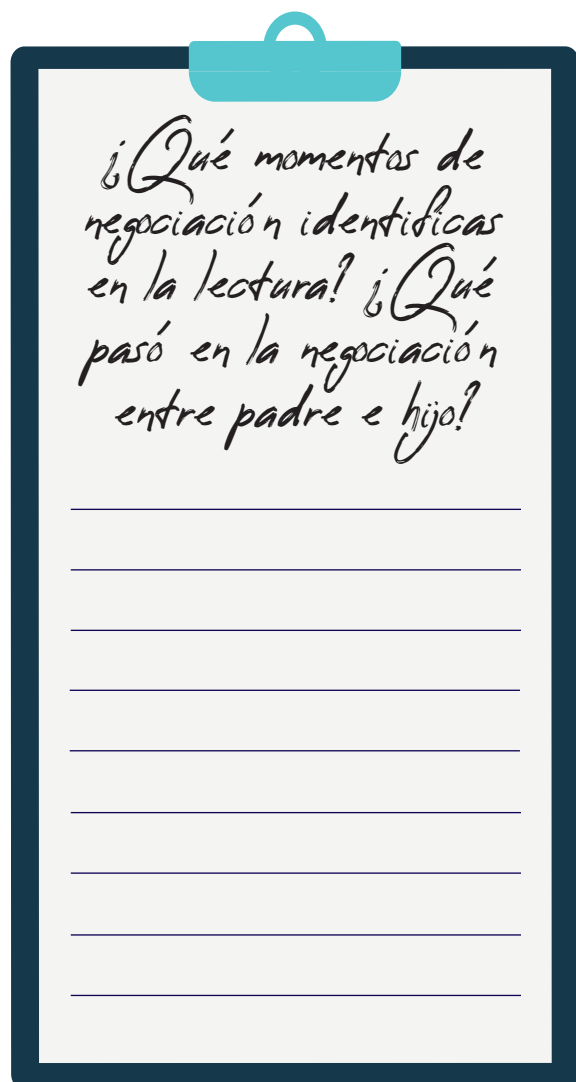 ¿Qué momentos de
negociación identificas
en la lectura? ¿Qué
pasó en la negociación
entre padre e hijo?